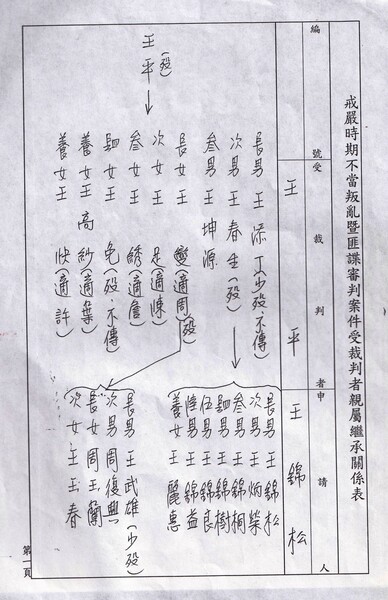 戒嚴時期不當叛亂暨匪諜審判案件受裁判者親屬繼承關係表
編號
受裁判者
王平
申請人
王錦松
王平(歿)
長男王添丁(少歿、不傳)
次男王春生(歿)
參男王坤源
長女王
(適周)(歿)
次女王足(適陳)
參女王綉(適詹)
肆女王免(歿、不傳)
養女王高紗(適葉)
養女王快(適許)
長男王錦松
次男王炳榮
參男王錦桐
肆男王錦樹
伍男王錦良
陸男王錦益
養女王麗惠
長男王武雄(少歿)
次男周復興
長女周玉蘭
次女王玉春
第一頁